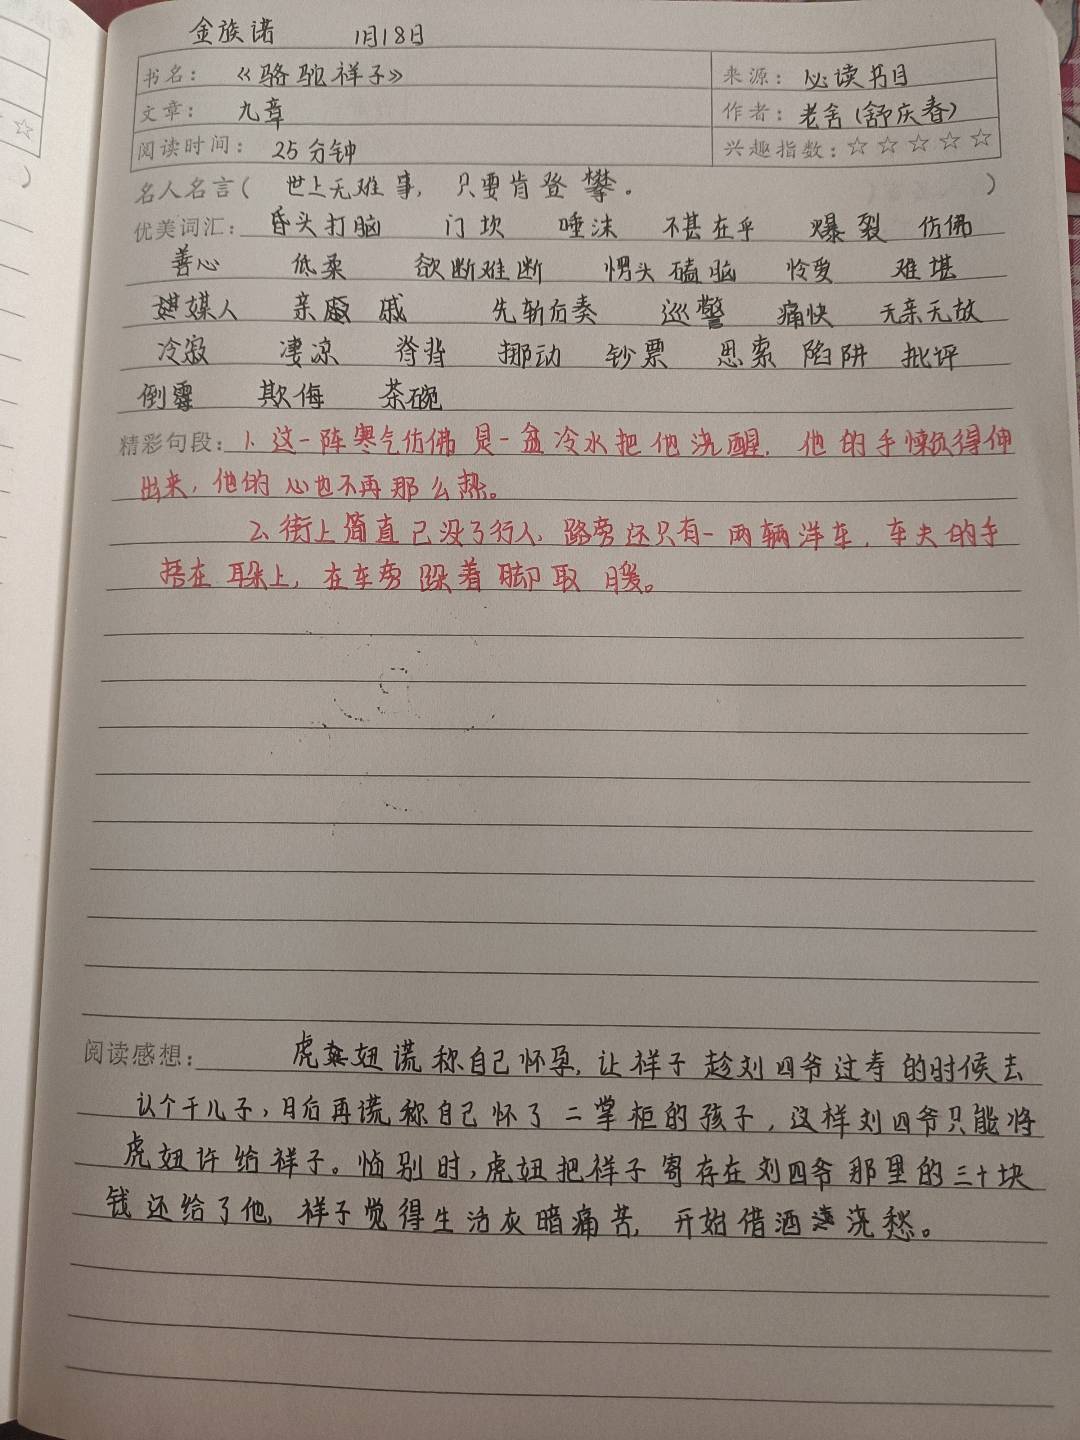 金族诺 1月18日
书名： 《骆驼祥子》 来源：必读书目
文章： 九章 作者：老舍（舒庆春）
阅读时间： 25分钟 兴趣指数：☆☆☆☆☆
名人名言( 世上无难事，只要肯登攀。 )
优美词汇： 昏头打脑 门坎 唾沫 不甚在乎 爆裂 仿佛
善心 低柔 欲断难断 愣头磕脑 怜爱 难堪
媒人 亲戚 先斩后奏 巡警 痛快 无亲无故
冷寂 凄凉 脊背 挪动 钞票 思索 陷阱 批评
倒霉 欺侮 茶碗
精彩句段：1.这一阵寒气仿佛是一盆冷水把他浇醒，他的手懒负得伸
出来，他的心也不再那么热。
2.街上简直已没了行人，路旁还只有一两辆洋车，车夫的手
捂在耳朵上，在车旁跺着脚取暖。
阅读感想： 虎妞谎称自己怀孕，让祥子趁刘四爷过寿的时候去
认个干儿子，日后再谎称自己怀了二掌柜的孩子，这样刘四爷只能将
虎妞许给祥子。临别时，虎妞把祥子寄存在刘四爷那里的三十块
钱还给了他，祥子觉得生活灰暗痛苦，开始借酒浇愁。